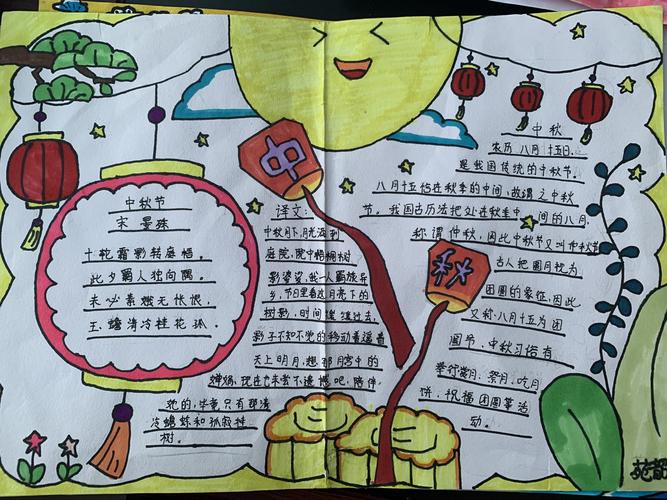 中秋节
宋 晏殊
十轮霜影转庭梧。
此夕羁人独向隅。
未必素娥无怅恨，
玉蟾清冷桂花孤。
中
秋
译文：
中秋月下，月亮洒到
庭院，院中梧桐树
影婆娑，我一人羁旅异
乡，节日里看这月亮下的
树影，时间慢慢过去，
影子不知不觉的移动着遥看
天上明月，想那月宫中的
婵娟，现在也未尝不遗憾吧，陪伴
她的，毕竟只有那清
冷蟾蜍和孤寂桂
树。
中秋
农历八月十五日，
是我国传统的中秋节，
八月十五恰在秋季的中间，故谓之中秋
节。我国古历法把处在秋季中间的八月，
称谓仲秋，因此中秋节又叫仲秋节
古人把圆月视为
团圆的象征，因此
又称八月十五为团
圆节，中秋习俗有
举行赏月、祭月、吃月
饼、祝福团圆等活
动。